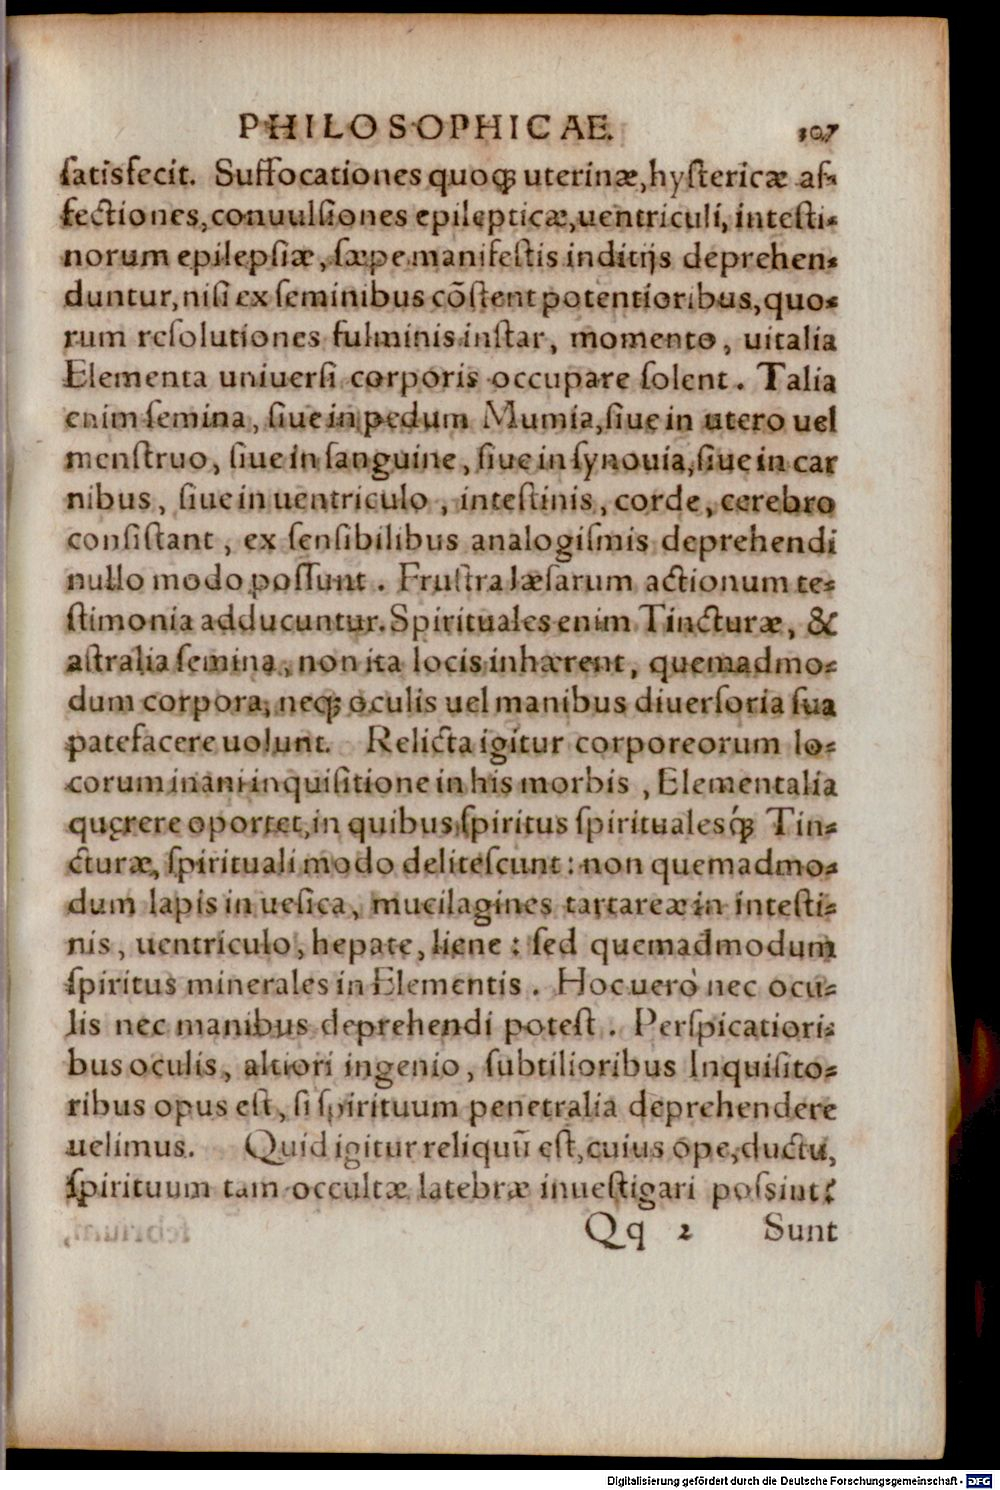 PHILOSOPHICAE. 307
ſatisfecit. Suffocationes quoq; uterinæ, hyſtericæ af-
fectiones, conuulſiones epilepticæ, uentriculi, inteſti-
norum epilepſiæ, ſæpe manifeſtis inditijs deprehen-
duntur, niſi ex ſeminibus cõſtent potentioribus, quo-
rum reſolutiones fulminis inſtar, momento, uitalia
Elementa uniuerſi corporis occupare ſolent. Talia
enim ſemina, ſiue in pedum Mumia, ſiue in utero uel
menſtruo, ſiue in ſanguine, ſiue in ſynouia, ſiue in car
nibus, ſiue in uentriculo, inteſtinis, corde, cerebro
conſiſtant, ex ſenſibilibus analogiſmis deprehendi
nullo modo poſſunt. Fruſtra læſarum actionum te-
ſtimonia adducuntur. Spirituales enim Tincturæ, &
aſtralia ſemina, non ita locis inhærent, quemadmo-
dum corpora, neq; oculis uel manibus diuerſoria ſua
patefacere uolunt. Relicta igitur corporeorum lo-
corum inani inquiſitione in his morbis, Elementalia
quęrere oportet, in quibus ſpiritus ſpirituales q́; Tin-
cturæ, ſpirituali modo deliteſcunt: non quemadmo-
dum lapis in ueſica, mucilagines tartareæ in inteſti-
nis, uentriculo, hepate, liene: ſed quemadmodum
ſpiritus minerales in Elementis. Hoc uerò nec ocu-
lis nec manibus deprehendi poteſt. Perſpicatiori-
bus oculis, altiori ingenio, ſubtilioribus Inquiſito-
ribus opus eſt, ſi ſpirituum penetralia deprehendere
uelimus. Quid igitur reliquũ eſt, cuius ope, ductu,
ſpirituum tam occultæ latebræ inueſtigari poſsint?
Qq 2 Sunt
Digitalisierung gefördert durch die Deutsche Forschungsgemeinschaft - DFG